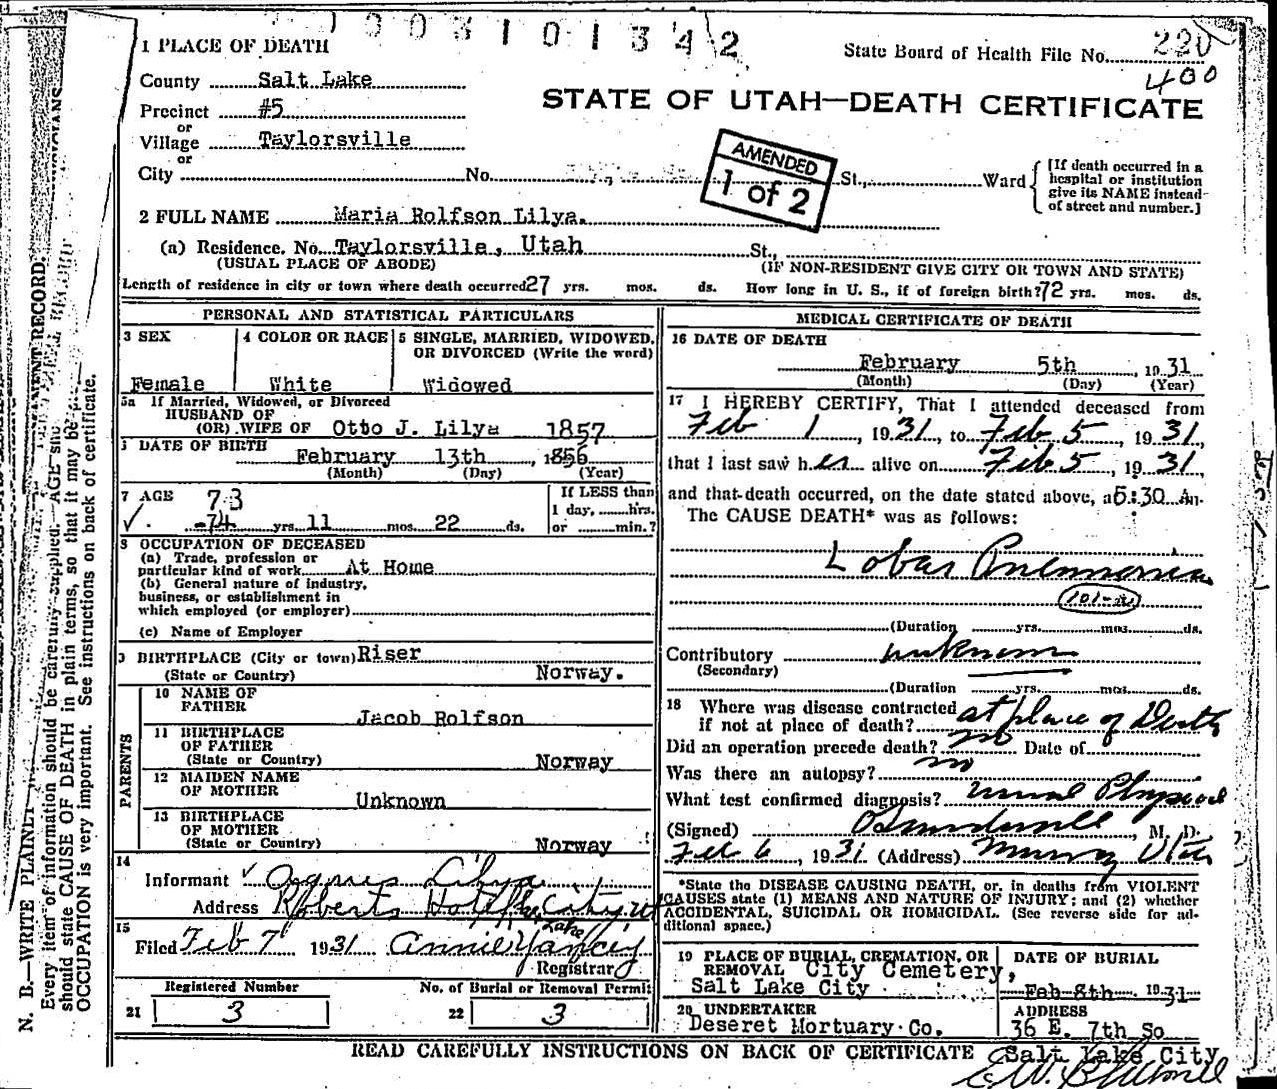 0 0 3 1 0 1 3 4 2
1 PLACE OF DEATH
State Board of Health File No. 220
400
County Salt Lake
STATE OF UTAH—DEATH CERTIFICATE
Precinct #5
or
Village Taylorsville
or
City No. St., Ward
AMENDED
1 of 2
[If death occurred in a
hospital or institution
give its NAME instead
of street and number.]
2 FULL NAME Maria Rolfson Lilya.
(a) Residence. No. Taylorsville, Utah St.,
(USUAL PLACE OF ABODE) (IF NON-RESIDENT GIVE CITY OR TOWN AND STATE)
Length of residence in city or town where death occurred 27 yrs. mos. ds. How long in U. S., if of foreign birth? 72 yrs. mos. ds.
PERSONAL AND STATISTICAL PARTICULARS
3 SEX 4 COLOR OR RACE 5 SINGLE, MARRIED, WIDOWED,
OR DIVORCED (Write the word)
Female White Widowed
5a If Married, Widowed, or Divorced
HUSBAND OF
(OR) WIFE OF Otto J. Lilya 1857
DATE OF BIRTH
February 13th, 1856
(Month) (Day) (Year)
7 AGE 73
74 yrs. 11 mos. 22 ds.
If LESS than
1 day, hrs.
or min.?
8 OCCUPATION OF DECEASED
(a) Trade, profession or
particular kind of work At Home
(b) General nature of industry,
business, or establishment in
which employed (or employer)
(c) Name of Employer
9 BIRTHPLACE (City or town) Riser
(State or Country) Norway.
PARENTS
10 NAME OF
FATHER
Jacob Rolfson
11 BIRTHPLACE
OF FATHER
(State or Country) Norway
12 MAIDEN NAME
OF MOTHER
Unknown
13 BIRTHPLACE
OF MOTHER
(State or Country) Norway
14
Informant Agnes Lilya
Address Roberts Hotel Lake City Ut
15
Filed Feb 7 1931 Annie Yancey
Registrar
Registered Number No. of Burial or Removal Permit
21 3 22 3
MEDICAL CERTIFICATE OF DEATH
16 DATE OF DEATH
February 5th, 1931
(Month) (Day) (Year)
17 I HEREBY CERTIFY, That I attended deceased from
Feb 1, 1931, to Feb 5, 1931,
that I last saw her alive on Feb 5, 1931
and that death occurred, on the date stated above, a 5:30 Am.
The CAUSE DEATH* was as follows:
Lobar Pneumonia
(Duration yrs. mos. ds.
Contributory unknown
(Secondary)
(Duration yrs. mos. ds.
18 Where was disease contracted
if not at place of death? at place of Death
Did an operation precede death? no Date of
Was there an autopsy? no
What test confirmed diagnosis? usual Physical
(Signed) M. D.
Feb 6, 1931 (Address) Murray Utah
*State the DISEASE CAUSING DEATH, or, in deaths from VIOLENT
CAUSES state (1) MEANS AND NATURE OF INJURY; and (2) whether
ACCIDENTAL, SUICIDAL OR HOMICIDAL. (See reverse side for ad-
ditional space.)
19 PLACE OF BURIAL, CREMATION, OR
REMOVAL City Cemetery,
Salt Lake City
DATE OF BURIAL
Feb 8th 1931
20 UNDERTAKER
Deseret Mortuary Co.
ADDRESS
36 E. 7th So
Salt Lake City
READ CAREFULLY INSTRUCTIONS ON BACK OF CERTIFICATE
N. B.—WRITE PLAINLY
Every item of information should be carefully supplied. AGE
should state CAUSE OF DEATH in plain terms, so that it may be
OCCUPATION is very important. See instructions on back of certificate.